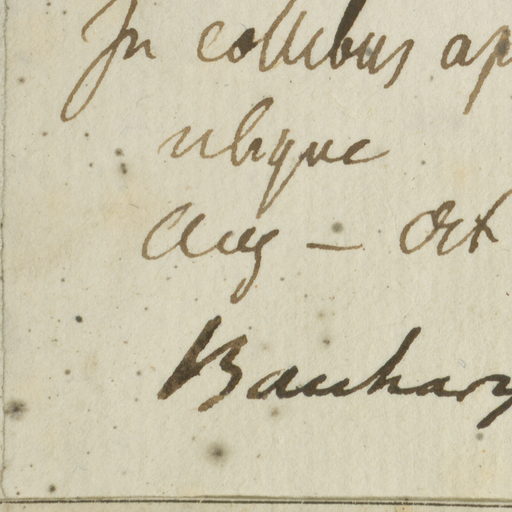 In collibus ap
ubique
Aug — Oct
Bauhary